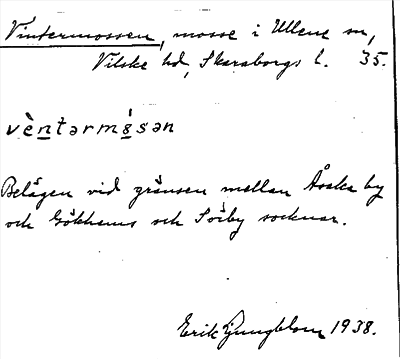 Vintermossen, mosse i Ullene sn,
Vilske hd, Skaraborgs l. 35.
vèntərmósən
Belägen vid gränsen mellan Åsaka by
och Gökhems och Sörby socknar.
Erik Ljungblom 1938.